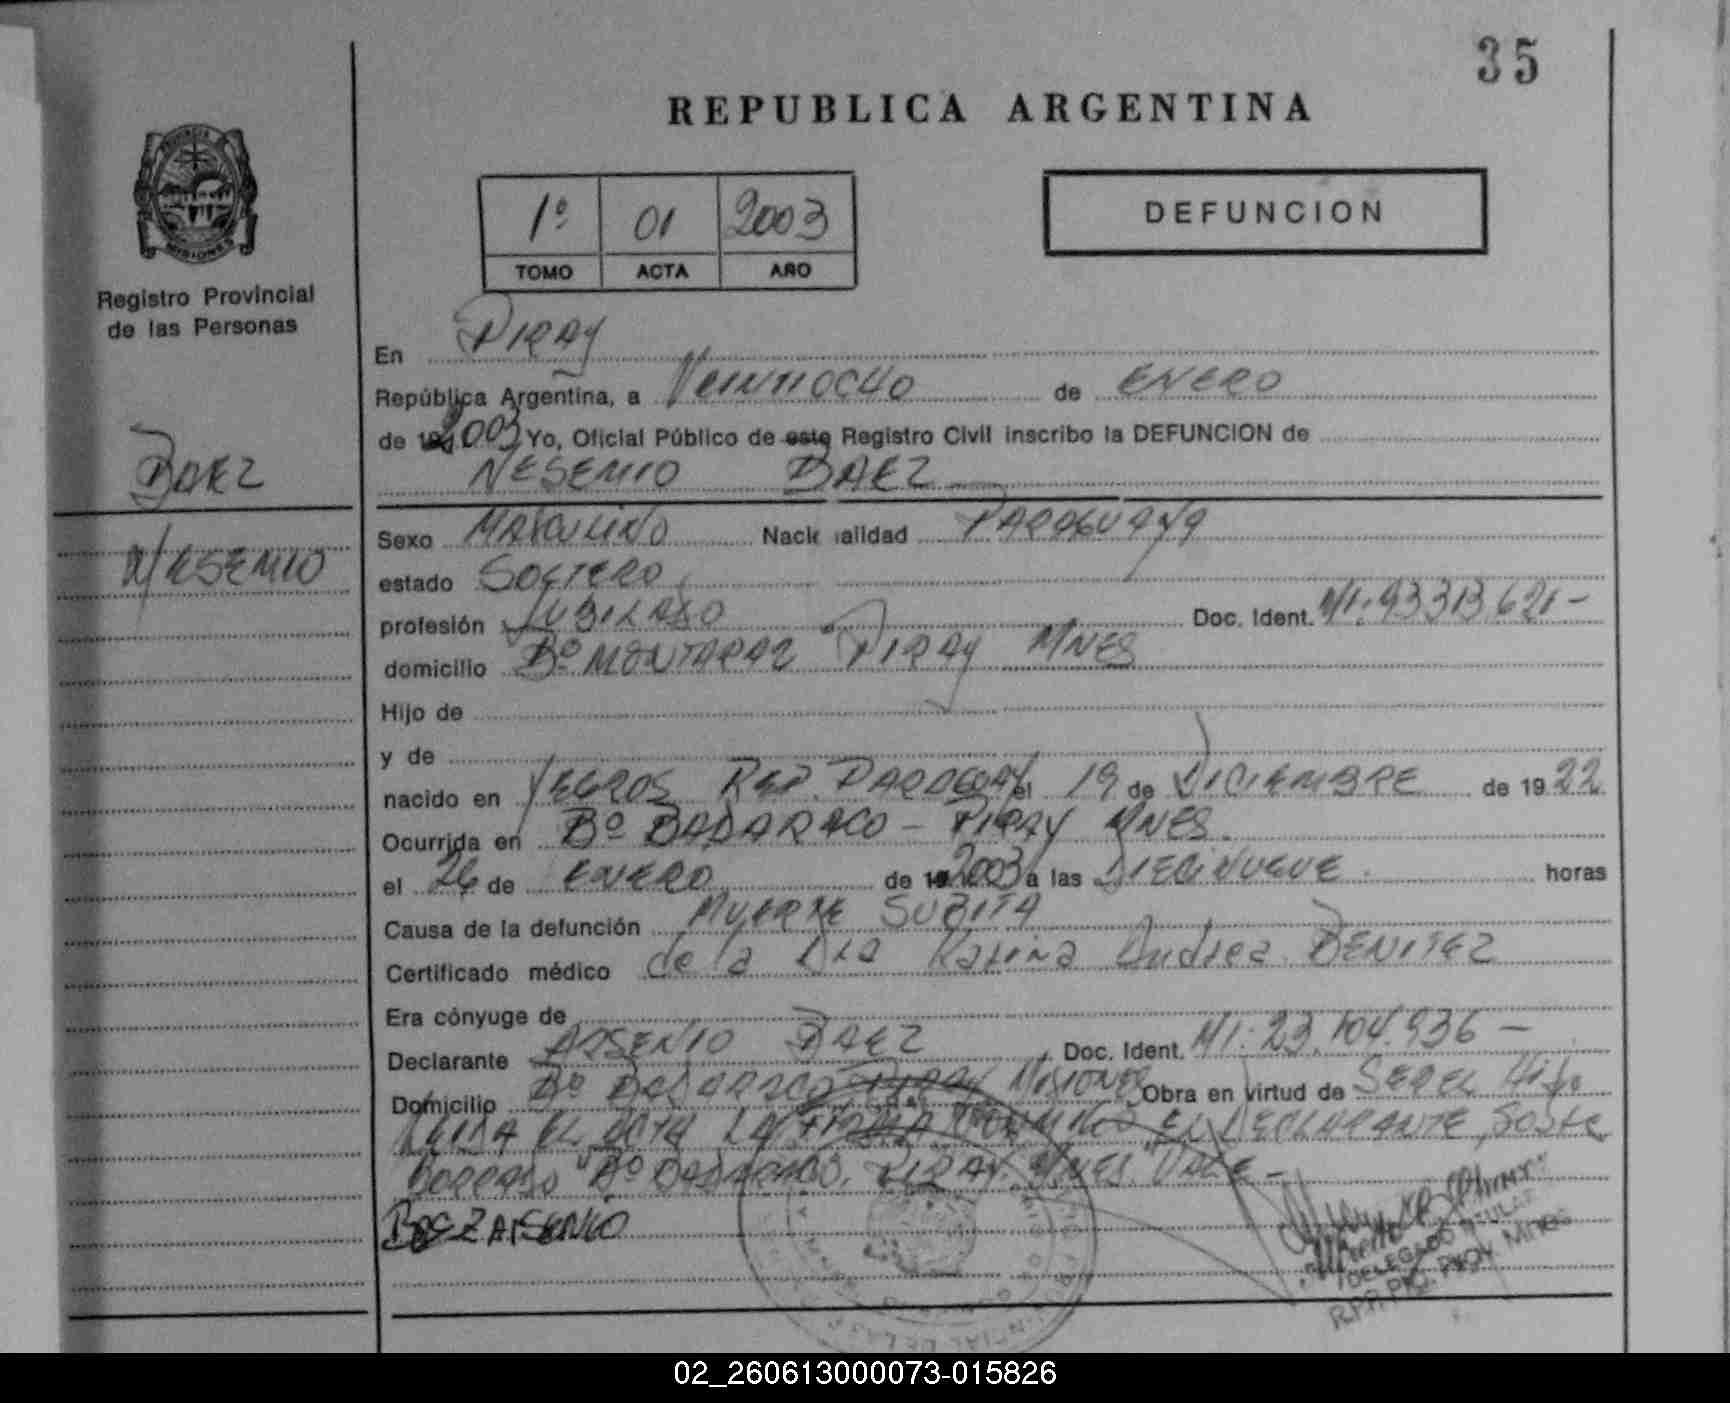 35
REPUBLICA ARGENTINA
PROVINCIA
MISIONES
Registro Provincial
de las Personas
1º 01 2003
TOMO ACTA AÑO
DEFUNCION
En PIRAY
República Argentina, a Veintiocho de ENERO
de 2003 Yo, Oficial Público de este Registro Civil inscribo la DEFUNCION de
NESEMIO BAEZ
BAEZ
NESEMIO
Sexo MASCULINO Nacionalidad PARAGUAYA
estado SOLTERO
profesión JUBILADO Doc. Ident. MI. 93313621-
domicilio Bº MONTARAZ PIRAY MNES
Hijo de
y de
nacido en YEGROS REP. PARAGUAY el 19 de DICIEMBRE de 1922
Ocurrida en Bº BADARACO - PIRAY MNES.
el 26 de ENERO de 2003 a las DIECINUEVE horas
Causa de la defunción MUERTE SUBITA
Certificado médico de la Dra Karina Andrea BENITEZ
Era cónyuge de
Declarante ARSENIO BAEZ Doc. Ident. MI. 23.104.936-
Domicilio Bº BADARACO PIRAY MISIONES Obra en virtud de SER EL Hijo
LEIDA EL ACTA LA FIRMA CONMIGO EL DECLARANTE, SOBRE
BORRADO "Bº BADARACO, PIRAY MNES" VALE-
BAEZ ARSENIO
DELEGADO TITULAR
R.P.P. PROV. MNES
02_260613000073-015826